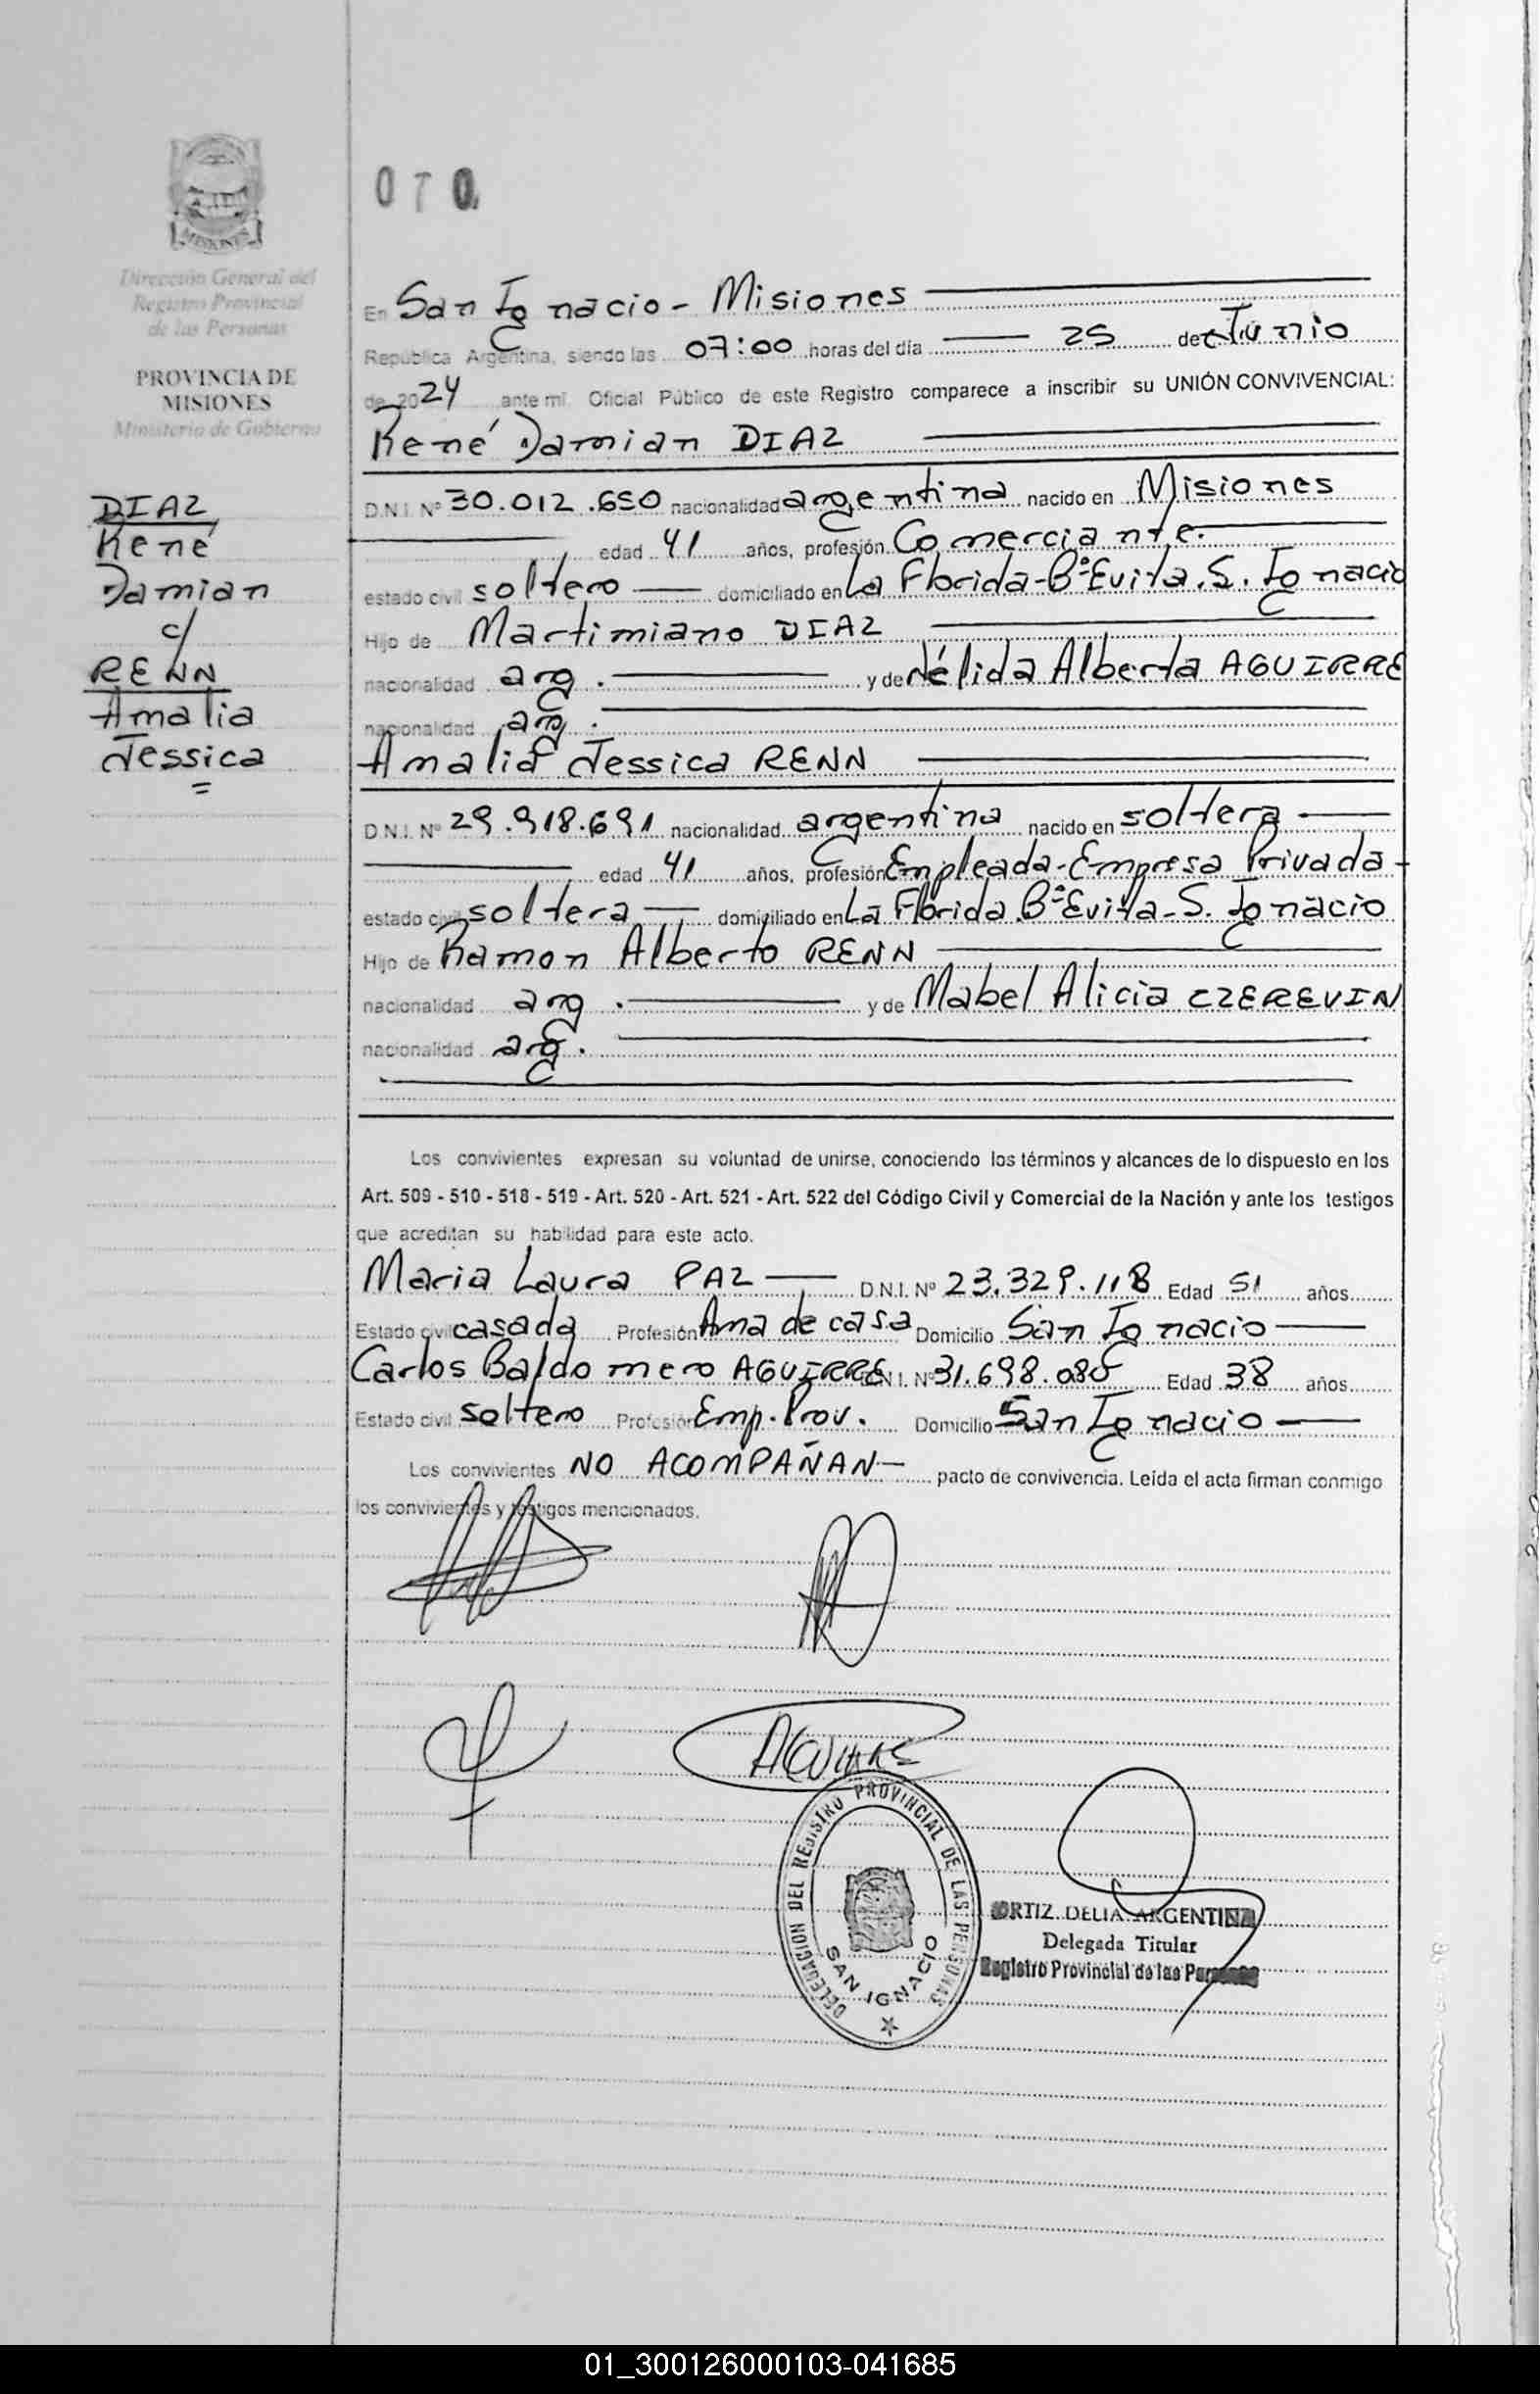 MISIONES
Dirección General del
Registro Provincial
de las Personas
PROVINCIA DE
MISIONES
Ministerio de Gobierno
DIAZ
René
Damian
c/
RENN
Amalia
Jessica
=
070
En San Ignacio - Misiones
República Argentina, siendo las 07:00 horas del día 25 de Junio
de 2024 ante mí Oficial Público de este Registro comparece a inscribir su UNIÓN CONVIVENCIAL:
René Damian DIAZ
D.N.I. Nº 30.012.650 nacionalidad argentina nacido en Misiones
edad 41 años, profesión Comerciante.
estado civil soltero domiciliado en La Florida-Bº Evita. S. Ignacio
Hijo de Martimiano DIAZ
nacionalidad arg. y de Nélida Alberta AGUIRRE
nacionalidad arg.
Amalia Jessica RENN
D.N.I. Nº 29.918.691 nacionalidad argentina nacido en soltera
edad 41 años, profesión Empleada-Empresa Privada-
estado civil soltera domiciliado en La Florida Bº Evita-S. Ignacio
Hijo de Ramon Alberto RENN
nacionalidad arg. y de Mabel Alicia CZEREVIN
nacionalidad arg.
Los convivientes expresan su voluntad de unirse, conociendo los términos y alcances de lo dispuesto en los
Art. 509 - 510 - 518 - 519 - Art. 520 - Art. 521 - Art. 522 del Código Civil y Comercial de la Nación y ante los testigos
que acreditan su habilidad para este acto.
Maria Laura PAZ D.N.I. Nº 23.329.118 Edad 51 años
Estado civil casada Profesión Ama de casa Domicilio San Ignacio
Carlos Baldomero AGUIRRE D.N.I. Nº 31.698.085 Edad 38 años
Estado civil soltero Profesión Emp. Prov. Domicilio San Ignacio
Los convivientes NO ACOMPAÑAN- pacto de convivencia. Leída el acta firman conmigo
los convivientes y testigos mencionados.
AGUIRRE
DELEGACION DEL REGISTRO PROVINCIAL DE LAS PERSONAS
SAN IGNACIO
ORTIZ DELIA ARGENTINA
Delegada Titular
Registro Provincial de las Personas
01_300126000103-041685